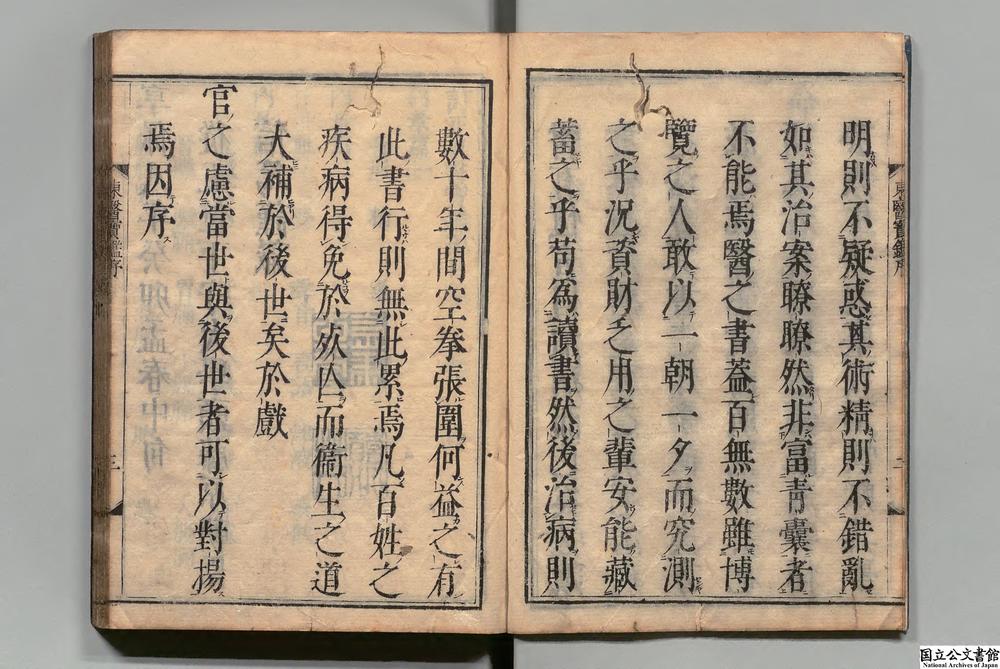 明則不疑惑其術精則不錯亂
如其治案瞭瞭然非富青囊者
不能焉醫之書蓋百無數雖博
覽之人敢以一朝一夕而究測
之乎況資財乏用之輩安能藏
蓄之乎苟爲讀書然後治病則
數十年間空拳張圍何益之有
此書行則無此累焉凡百姓之
疾病得免於夭亡而衞生之道
大補於後世矣於戲
官之慮當世與後世者可以對揚
焉因序
東醫寶鑑序
二
東醫寶鑑序
三
国立公文書館
National Archives of Japan